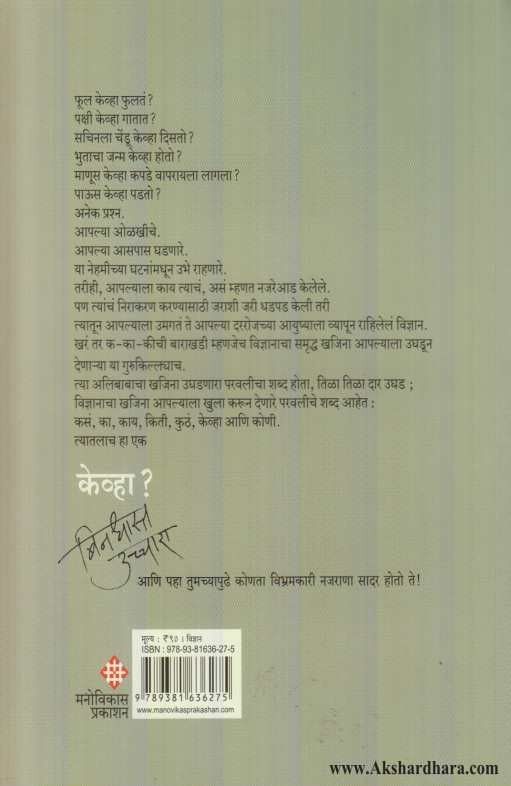 फूल केव्हा फुलतं?
पक्षी केव्हा गातात?
सचिनला चेंडू केव्हा दिसतो?
भुताचा जन्म केव्हा होतो?
माणूस केव्हा कपडे वापरायला लागला?
पाऊस केव्हा पडतो?
अनेक प्रश्न.
आपल्या ओळखीचे.
आपल्या आसपास घडणारे.
या नेहमीच्या घटनांमधून उभे राहणारे.
तरीही, आपल्याला काय त्याचं, असं म्हणत नजरेआड केलेले.
पण त्यांचं निराकरण करण्यासाठी जराशी जरी धडपड केली तरी
त्यातून आपल्याला उमगतं ते आपल्या दररोजच्या आयुष्याला व्यापून राहिलेलं विज्ञान.
खरं तर क-का-कीची बाराखडी म्हणजेच विज्ञानाचा समृद्ध खजिना आपल्याला उघडून
देणाऱ्या या गुरुकिल्ल्याच.
त्या अलिबाबाचा खजिना उघडणारा परवलीचा शब्द होता, तिळा तिळा दार उघड ;
विज्ञानाचा खजिना आपल्याला खुला करून देणारे परवलीचे शब्द आहेत :
कसं, का, काय, किती, कुठं, केव्हा आणि कोणी.
त्यातलाच हा एक
केव्हा ?
बिनधास्त
उच्चारा
आणि पहा तुमच्यापुढे कोणता विभ्रमकारी नजराणा सादर होतो ते!
मूल्य : ₹९० । विज्ञान
ISBN : 978-93-81636-27-5
9 789381 636275
www.manovikasprakashan.com
मनोविकास
प्रकाशन
www.Akshardhara.com